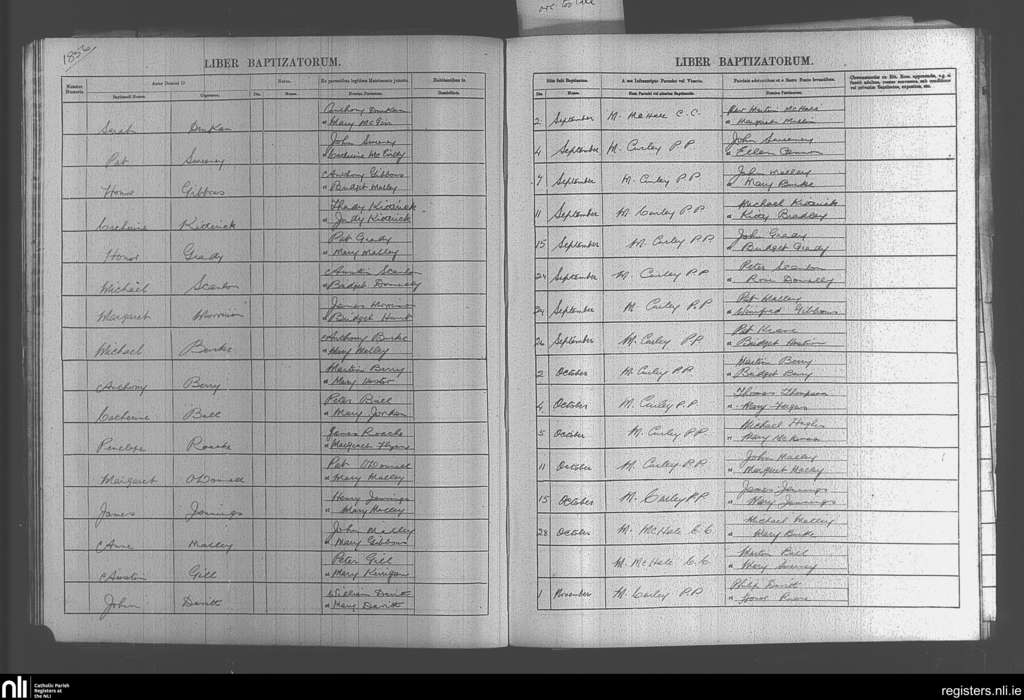 are to like
1856
LIBER BAPTIZATORUM.
Anno Domini 18
Natus.
Ex parentibus legitimo Matrimonio junctis.
Habitantibus in
Baptizati Nomen.
Cognomen.
Die.
Mense.
Nomina Parentum.
Domicilium.
Sarah Dunkan
Anthony Dunkan
" Mary McGin
Pat Sweeney
John Sweeney
" Catherine McCully
Honor Gibbons
Anthony Gibbons
" Bridget Malley
Catherine Kitterick
Thady Kitterick
" Judy Kitterick
Honor Grady
Pat Grady
" Mary Malley
Michael Scanlon
Austin Scanlon
" Bridget Donnelly
Margaret Morrison
James Morrison
" Bridget Hunt
Michael Burke
Anthony Burke
" Mary Malley
Anthony Berry
Martin Berry
" Mary
Catherine Ball
Peter Ball
" Mary Jordan
Penelope Roache
James Roache
" Margaret Flynn
Margaret O'Donnell
Pat O'Donnell
" Mary Malley
James Jennings
Henry Jennings
" Mary Malley
Anne Malley
John Malley
" Mary Gibbons
Austin Gill
Peter Gill
" Mary Kerrigan
John Davitt
William Davitt
" Mary Davitt
LIBER BAPTIZATORUM.
Die.
Mense.
Nomina Patrinorum.
2 September M. McHale C.C.
Rev Martin McHale
" Margaret Mullin
4 September M. Curley P.P.
John Sweeney
" Ellen
7 September M. Curley P.P.
John Malley
" Mary Burke
11 September M. Curley P.P.
Michael Kitterick
" Kitty Bradley
15 September M. Curley P.P.
John Grady
" Bridget Grady
24 September M. Curley P.P.
Peter Scanlon
" Rose Donnelly
24 September M. Curley P.P.
Pat Malley
" Winifred Gibbons
26 September M. Curley P.P.
Pat Keane
" Bridget
2 October M. Curley P.P.
Martin Berry
" Bridget Berry
4 October M. Curley P.P.
Thomas Thompson
" Mary
5 October M. Curley P.P.
Michael Hughes
" Mary
11 October M. Curley P.P.
John Malley
" Margaret Malley
15 October M. Curley P.P.
James Jennings
" Mary Jennings
28 October M. McHale C.C.
Michael Malley
" Mary Burke
M. McHale C.C.
Martin Ball
" Mary Sweeney
1 November M. Curley P.P.
Philip Davitt
" Honor
nli
Catholic Parish
Registers at
the NLI
registers.nli.ie